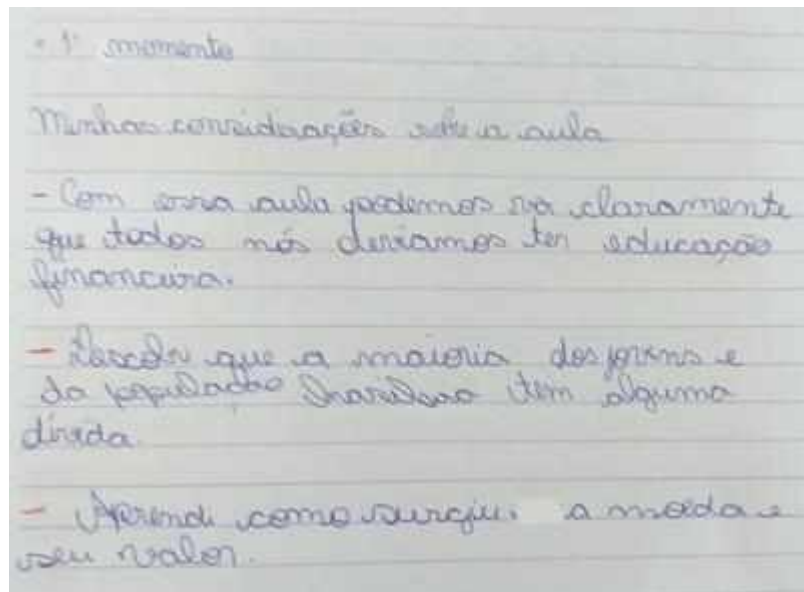 - 1º momento
Minhas considerações sobre a aula
- Com essa aula podemos ver claramente
que todos nós deviamos ter educação
financeira.
- Descobri que a maioria dos jovens e
da população brasileira tem alguma
divida.
- Aprendi como surgiu a moeda e
seu valor.